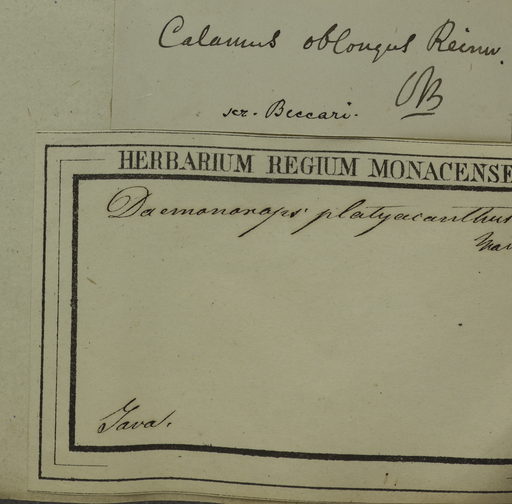 Calamus oblongus Reinw.
scr. Beccari.
HERBARIUM REGIUM MONACENSE
Daemonorops platyacanthus
Mar
Java.